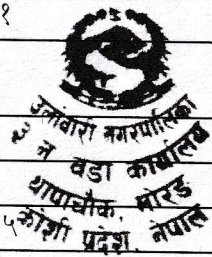 १
उर्लाबारी नगरपालिका
३ न वडा कार्यालय
थापाचौक, मोरङ
५
कोशी प्रदेश, नेपाल